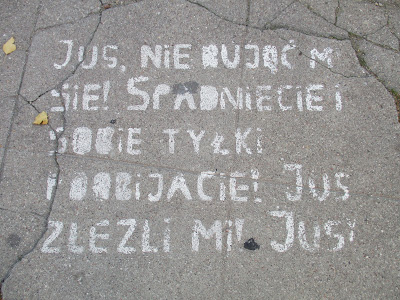 JUS, NIE BUJAĆ MI
SIE! SPADNIECIE I
SOBIE TYŁKI
POOBIJACIE! JUS
ZLEZLI MI! JUS!